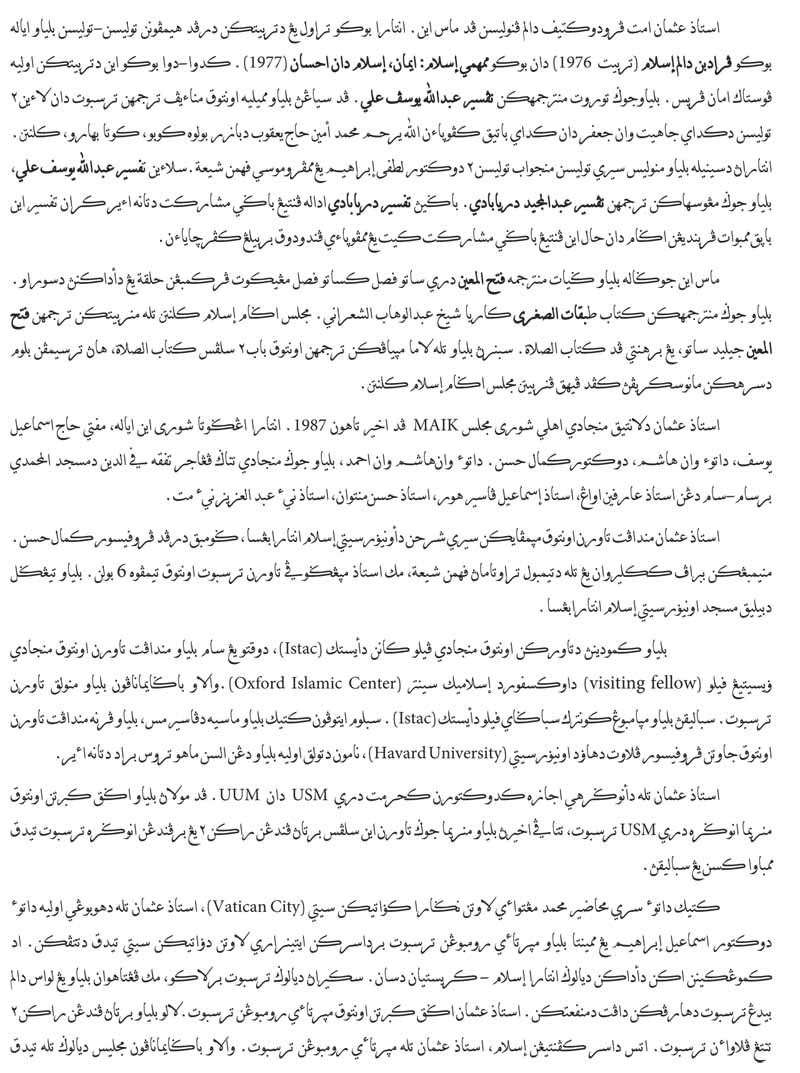 استاذ عثمان امت ڤرودوكتيف دالم ڤنوليسن ڤد ماس اين. انتارا بوكو تراول يڠ دتربيتكن درڤد هيمڤونن توليسن-توليسن بلياو اياله
بوكو ڤرادبن دالم إسلام (تربيت 1976) دان بوكو ممهمي إسلام: ايمان، إسلام دان احسان (1977). كدوا-دوا بوكو اين دتربيتكن اوليه
ڤوستاك امان ڤريس. بلياو جوݢ توروت منترجمهكن تفسير عبدالله يوسف علي. ڤد سياڠڽ بلياو مميليه اونتوق مناءيڤ ترجمهن ترسبوت دان لاءين٢
توليسن دكداي جاهيت وان جعفر دان كداي باتيق كڤوڽاءن الله يرحم محمد أمين حاج يعقوب دبازير بولوه كوبو، كوتا بهارو، كلنتن.
انتاراڽ دسينيله بلياو منوليس سيري توليسن منجواب توليسن٢ دوكتور لطفي إبراهيم يڠ ممڤروموسي فهمن شيعة. سلاءين تفسير عبدالله يوسف علي،
بلياو جوݢ مڠوسهاكن ترجمهن تفسير عبدالمجيد دريابادي. باݢيڽ تفسير دريابادي اداله ڤنتيڠ باݢي مشاركت دتانه اءير كران تفسير اين
باڽق ممبوات ڤربنديڠن اݢام دان حال اين ڤنتيڠ باݢي مشاركت كيت يڠ ممڤوڽاءي ڤندودوق بربيلڠ كڤرچاياءن.
ماس اين جوݢاله بلياو ݢيات منترجمه فتح المعين دري ساتو فصل كساتو فصل مڠيكوت ڤركمبڠن حلقة يڠ دأداكنڽ دسوراو.
بلياو جوݢ منترجمهكن كتاب طبقات الصغرى كاريا شيخ عبدالوهاب الشعراني. مجلس اݢام إسلام كلنتن تله منربيتكن ترجمهن فتح
المعين جيليد ساتو، يڠ برهنتي ڤد كتاب الصلاة. سبنرڽ بلياو تله لاما مڽياڤكن ترجمهن اونتوق باب٢ سلڤس كتاب الصلاة، هاڽ ترسيمڤن بلوم
دسرهكن مانوسكريڤڽ كڤد ڤيهق ڤنربيتن مجلس اݢام إسلام كلنتن.
استاذ عثمان دلانتيق منجادي اهلي شورى مجلس MAIK ڤد اخير تاهون 1987. انتارا اڠݢوتا شورى اين اياله، مفتي حاج اسماعيل
يوسف، داتوء وان هاشم، دوكتور كمال حسن. داتوء وان هاشم وان احمد، بلياو جوݢ منجادي تناݢ ڤڠاجر تفقه في الدين دمسجد المحمدي
برسام-سام دڠن استاذ عارفين اواڠ، استاذ إسماعيل ڤاسير هور، استاذ حسن منتوان، استاذ نيء عبد العزيز نيء مت.
استاذ عثمان منداڤت تاورن اونتوق مڽمڤايكن سيري شرحن دأونيۏرسيتي إسلام انتارابڠسا، ݢومبق درڤد ڤروفيسور كمال حسن.
منيمبڠكن براڤ ككليروان يڠ تله دتيمبول تراوتاماڽ فهمن شيعة، مك استاذ مڽڠݢوڤي تاورن ترسبوت اونتوق تيمڤوه 6 بولن. بلياو تيڠݢل
دبيليق مسجد اونيۏرسيتي إسلام انتارابڠسا.
بلياو كمودينڽ دتاوركن اونتوق منجادي ڤيلو كانن دأيستك (Istac)، دوقتو يڠ سام بلياو منداڤت تاورن اونتوق منجادي
ۏيسيتيڠ فيلو (visiting fellow) داوكسفورد إسلاميك سينتر (Oxford Islamic Center). والاو باݢايماناڤون بلياو منولق تاورن
ترسبوت. سباليقڽ بلياو مڽامبوڠ كونترك سباݢاي فيلو دأيستك (Istac). سبلوم ايتوڤون كتيك بلياو ماسيه دڤاسير مس، بلياو ڤرنه منداڤت تاورن
اونتوق جاوتن ڤروفيسور ڤلاوت دهاۏد اونيۏرسيتي (Havard University)، نامون دتولق اوليه بلياو دڠن السن ماهو تروس براد دتانه اءير.
استاذ عثمان تله دأنوݢرهي اجازه كدوكتورن كحرمت دري USM دان UUM. ڤد مولاڽ بلياو اڠݢن كبرتن اونتوق
منريما انوݢره دري USM ترسبوت، تتاڤي اخيرڽ بلياو منريما جوݢ تاورن اين سلڤس برتاڽ ڤندڠن راكن٢ يڠ برڤندڠن انوݢره ترسبوت تيدق
ممباوا كسن يڠ سباليقڽ.
كتيك داتوء سري محاضير محمد مڠتواءي لاوتن نݢارا كۏاتيكن سيتي (Vatican City)، استاذ عثمان تله دهوبوڠي اوليه داتوء
دوكتور اسماعيل إبراهيم يڠ ممينتا بلياو مڽرتاءي رومبوڠن ترسبوت برداسركن ايتينراري لاوتن دۏاتيكن سيتي تيدق دتتڤكن. اد
كموڠكينن اكن دأداكن ديالوݢ انتارا إسلام - كريستيان دسان. سكيراڽ ديالوݢ ترسبوت برلاكو، مك ڤڠتاهوان بلياو يڠ لواس دالم
بيدڠ ترسبوت دهارڤكن داڤت دمنفعتكن. استاذ عثمان اڠݢن كبرتن اونتوق مڽرتاءي رومبوڠن ترسبوت. لالو بلياو برتاڽ ڤندڠن راكن٢
تنتڠ ڤلاواءن ترسبوت. اتس داسر كڤنتيڠن إسلام، استاذ عثمان تله مڽرتاءي رومبوڠن ترسبوت. والاو باݢايماناڤون مجليس ديالوݢ تله تيدق